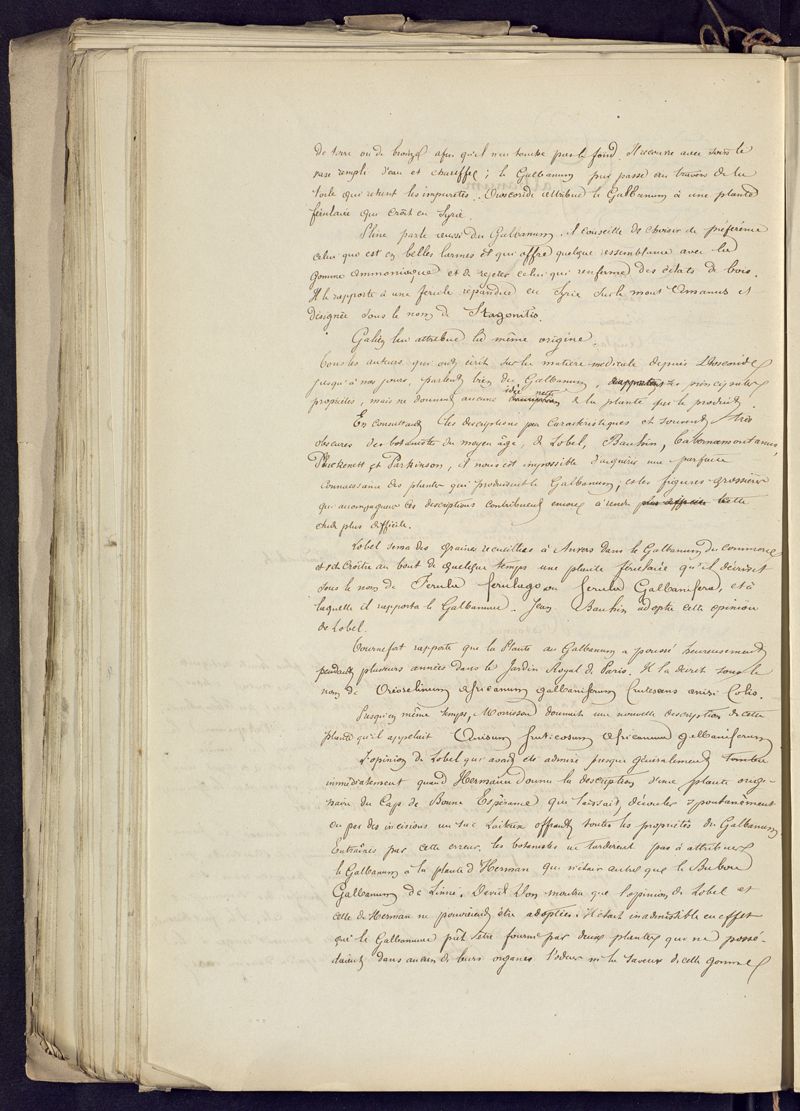 de terre ou de bronze afin qu'il ne touche pas le fond. Il recouvre avec soin le
vase rempli d'eau et chauffe ; le Galbanum pur passe au travers de la
toile qui retient les impuretés. Dioscoride attribue le Galbanum à une plante
férulacée qui croît en Syrie.
Pline parle aussi du Galbanum, il conseille de choisir de préférence
celui qui est en belles larmes et qui offre quelque ressemblance avec la
gomme ammoniaque et de rejeter celui qui renferme des éclats de bois.
Il le rapporte à une ferule répandue en Syrie sur le mont Amanus et
désignée sous le nom de Stagonitis.
Galien lui attribue la même origine.
Tous les auteurs qui ont écrit sur la matière médicale depuis Dioscoride
jusqu'à nos jours, parlent bien du Galbanum, de ses principales
propriétés, mais ne donnent aucune idée nette de la plante qui le produit.
En consultant les descriptions peu caractéristiques et souvent très
obscures des botanistes du moyen âge, de Lobel, Bauhin, Tabernaemontanus,
Pluckenett et Parkinson, il nous est impossible d'acquérir une parfaite
connaissance des plantes qui produisent le Galbanum, et les figures grossières
qui accompagnent ces descriptions contribuent encore à rendre cette
étude plus difficile.
Lobel sema des graines recueillies à Anvers dans le Galbanum du commerce
et vit croître au bout de quelque temps une plante férulacée qu'il décrivit
sous le nom de Ferula ferulago ou ferula Galbanifera, et à
laquelle il rapporta le Galbanum. Jean Bauhin adopta cette opinion
de Lobel.
Tournefort rapporte que la Plante au Galbanum a poussé heureusement
pendant plusieurs années dans le Jardin Royal de Paris. Il la décrit sous le
nom de Oreoselinum africanum galbaniferum frutescens anisi folio.
Presqu'en même temps, Morisson donnait une nouvelle description de cette
plante qu'il appelait Anisum fruticosum Africanum galbaniferum.
L'opinion de Lobel qui avait été admise presque généralement tomba
immédiatement quand Hermann donna la description d'une plante origi-
naire du Cap de Bonne Espérance qui laissait découler spontanément
ou par des incisions un suc laiteux offrant toutes les propriétés du Galbanum.
Entraînés par cette erreur, les botanistes ne tardèrent pas à attribuer
le Galbanum à la plante d'Herman qui n'était autre que le Bubon
Galbanum de Linné. David Don montra que l'opinion de Lobel et
celle de Herman ne pouvaient être adoptées. Il était inadmissible en effet
que le Galbanum pût être fourni par deux plantes qui ne possé-
daient dans aucun de leurs organes l'odeur ni la saveur de cette gomme